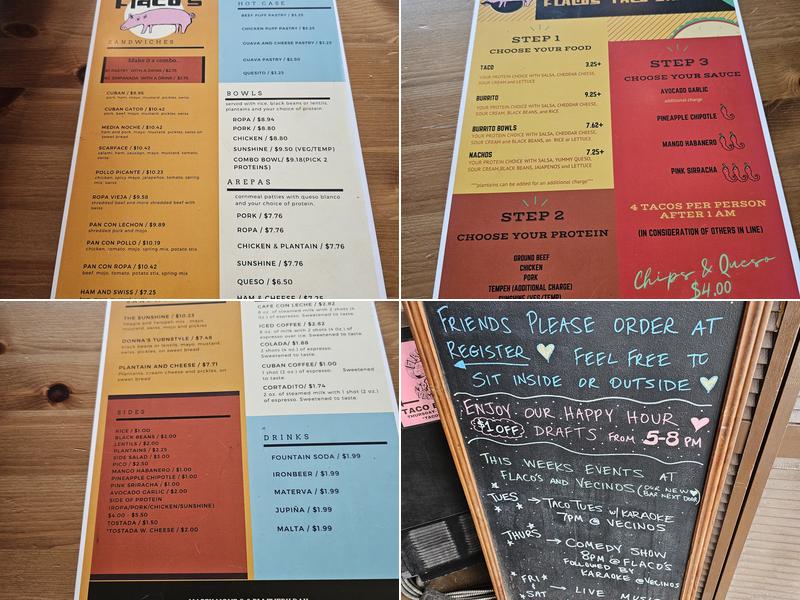 Flaco's
SANDWICHES
Make it a combo..
PASTRY WITH A DRINK / $2.75
EMPANADA WITH A DRINK / $3.75
CUBAN / $8.95
pork, ham, mayo, mustard, pickles, swiss
CUBAN GATOR / $10.42
pork, beef, mayo, mustard, pickles, swiss
MEDIA NOCHE / $10.42
ham and pork, mayo, mustard, pickles, swiss on
sweet bread
SCARFACE / $10.42
salami, ham, sausage, mayo, mustard, tomato,
swiss
POLLO PICANTE / $10.23
chicken, spicy mayo, jalapeños, tomato, spring
mix, swiss
ROPA VIEJA / $9.58
shredded beef and more shredded beef with
swiss
PAN CON LECHON / $9.89
shredded pork and mojo
PAN CON POLLO / $10.19
chicken, tomato, mojo, spring mix, potato stix
PAN CON ROPA / $10.42
beef, mojo, tomato, potato stix, spring mix
HAM AND SWISS / $7.25
HOT CASE
BEEF PUFF PASTRY / $1.25
CHICKEN PUFF PASTRY / $1.25
GUAVA AND CHEESE PASTRY / $1.25
GUAVA PASTRY / $2.50
QUESITO / $1.25
BOWLS
served with rice, black beans or lentils,
plantains and your choice of protein.
ROPA / $8.94
PORK / $8.80
CHICKEN / $8.80
SUNSHINE / $9.50 (VEG/TEMP)
COMBO BOWL/ $9.18(PICK 2
PROTEINS)
AREPAS
cornmeal patties with queso blanco
and your choice of protein.
PORK / $7.76
ROPA / $7.76
CHICKEN & PLANTAIN / $7.76
SUNSHINE / $7.76
QUESO / $6.50
HAM & CHEESE / $7.26
FLACOS TACO
STEP 1
CHOOSE YOUR FOOD
TACO 3.25+
YOUR PROTEIN CHOICE WITH SALSA, CHEDDAR CHEESE,
SOUR CREAM and LETTUCE
BURRITO 9.25+
YOUR PROTEIN CHOICE WITH SALSA, CHEDDAR CHEESE,
SOUR CREAM, BLACK BEANS, and RICE
BURRITO BOWLS 7.62+
YOUR PROTEIN CHOICE WITH SALSA, CHEDDAR CHEESE,
SOUR CREAM and BLACK BEANS, on RICE or LETTUCE
NACHOS 7.25+
YOUR PROTEIN CHOICE WITH SALSA, YUMMY QUESO,
SOUR CREAM, BLACK BEANS, JALAPENOS and LETTUCE
***plantains can be added for an additional charge***
STEP 2
CHOOSE YOUR PROTEIN
GROUND BEEF
CHICKEN
PORK
TEMPEH (ADDITIONAL CHARGE)
SUNSHINE (VEG/TEMP)
STEP 3
CHOOSE YOUR SAUCE
AVOCADO GARLIC
additional charge
PINEAPPLE CHIPOTLE
MANGO HABANERO
PINK SRIRACHA
4 TACOS PER PERSON
AFTER 1 AM
(IN CONSIDERATION OF OTHERS IN LINE)
Chips & Queso
$4.00
THE SUNSHINE / $10.23
veggie and tempeh mix, mayo,
mustard, swiss, mojo and pickles
DONNA'S TURNSTYLE / $7.48
black beans or lentils, mayo, mustard,
swiss, pickles, on sweet bread
PLANTAIN AND CHEESE / $7.71
Plantains, cream cheese and pickles, on
sweet bread
SIDES
RICE / $1.00
BLACK BEANS / $2.00
LENTILS / $2.00
PLANTAINS / $2.25
SIDE SALAD / $3.00
PICO / $2.50
MANGO HABANERO / $1.00
PINEAPPLE CHIPOTLE / $1.00
PINK SRIRACHA / $1.00
AVOCADO GARLIC / $2.00
SIDE OF PROTEIN
(ROPA/PORK/CHICKEN/SUNSHINE)
$4.00 - $5.50
TOSTADA / $1.50
*TOSTADA W. CHEESE / $2.00
CAFE CON LECHE / $2.82
6 oz. of steamed milk with 2 shots (4 oz.)
of espresso. Sweetened to taste
ICED COFFEE / $2.82
8 oz. of milk with 2 shots (4 oz.) of
espresso over ice. Sweetened to taste.
COLADA/ $1.88
2 shots (4 oz.) of espresso. Sweetened
to taste.
CUBAN COFFEE/ $1.00
1 shot (2 oz.) of espresso. Sweetened
to taste
CORTADITO/ $1.74
2 oz. of steamed milk with 1 shot (2 oz.)
of espresso. Sweetened to taste.
DRINKS
FOUNTAIN SODA / $1.99
IRONBEER / $1.99
MATERVA / $1.99
JUPIÑA / $1.99
MALTA / $1.99
FRIENDS PLEASE ORDER AT
REGISTER FEEL FREE TO
SIT INSIDE OR OUTSIDE
ENJOY OUR HAPPY HOUR
$1 OFF DRAFTS FROM 5-8 PM
THIS WEEKS EVENTS AT
FLACO'S AND VECINOS (OUR NEW
BAR NEXT DOOR)
TUES → TACO TUES W/ KARAOKE
7PM @ VECINOS
THURS → COMEDY SHOW
8PM @ FLACO'S
FOLLOWED BY
KARAOKE @VECINOS
FRI
SAT → LIVE MUSIC